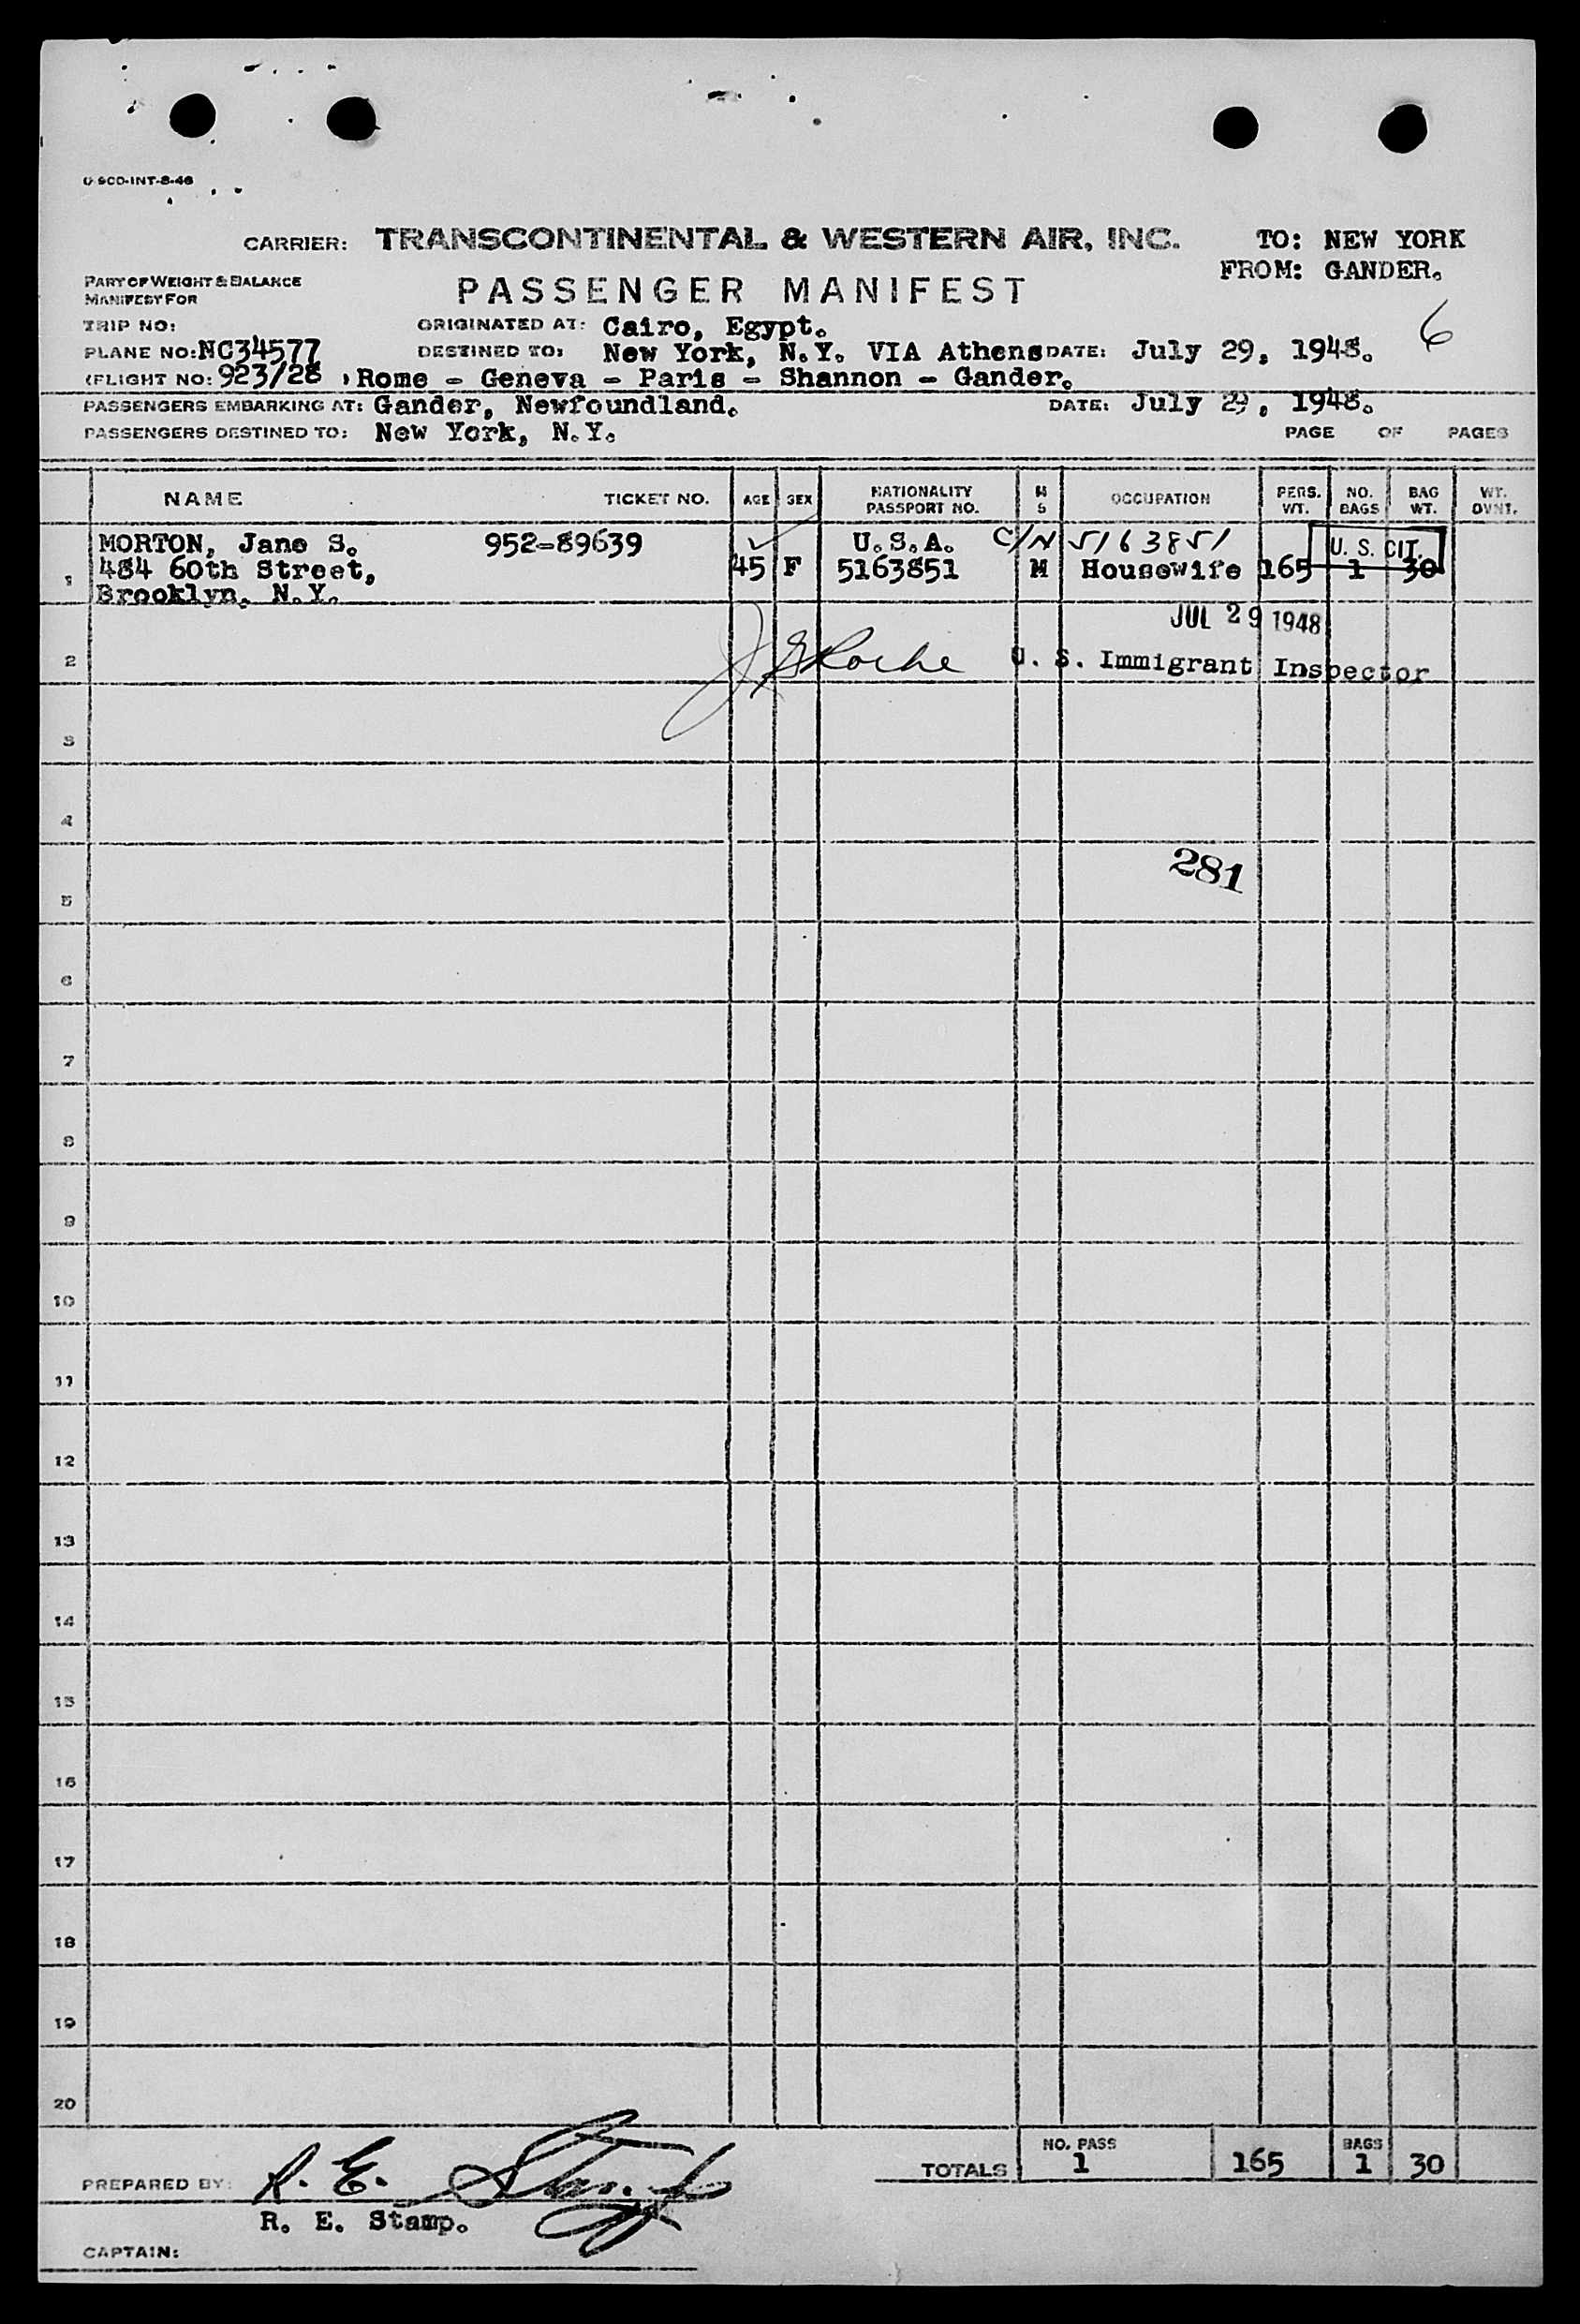 CARRIER: TRANSCONTINENTAL & WESTERN AIR, INC. TO: NEW YORK
FROM: GANDER.
PART OF WEIGHT & BALANCE
MANIFEST FOR
PASSENGER MANIFEST
6
TRIP NO: ORIGINATED AT: Cairo, Egypt.
PLANE NO: NC34577 DESTINED TO: New York, N.Y. VIA Athens DATE: July 29, 1948.
(FLIGHT NO: 923/28 ) Rome - Geneva - Paris - Shannon - Gander.
PASSENGERS EMBARKING AT: Gander, Newfoundland. DATE: July 29, 1948.
PASSENGERS DESTINED TO: New York, N.Y. PAGE OF PAGES
NAME TICKET NO. AGE SEX NATIONALITY PASSPORT NO. M S OCCUPATION PERS. WT. NO. BAGS BAG WT. WT. OVNT.
MORTON, Jane S. 952-89639 U.S.A. C/N 5163851 U. S. CIT.
1 484 60th Street, 45 F 5163851 M Housewife 165 1 30
Brooklyn, N.Y.
JUL 29 1948
2 U. S. Immigrant Inspector
3
4
281
5
6
7
8
9
10
11
12
13
14
15
16
17
18
19
20
NO. PASS BAGS
TOTALS 1 165 1 30
PREPARED BY: R. E. Stamp
R. E. Stamp.
CAPTAIN: